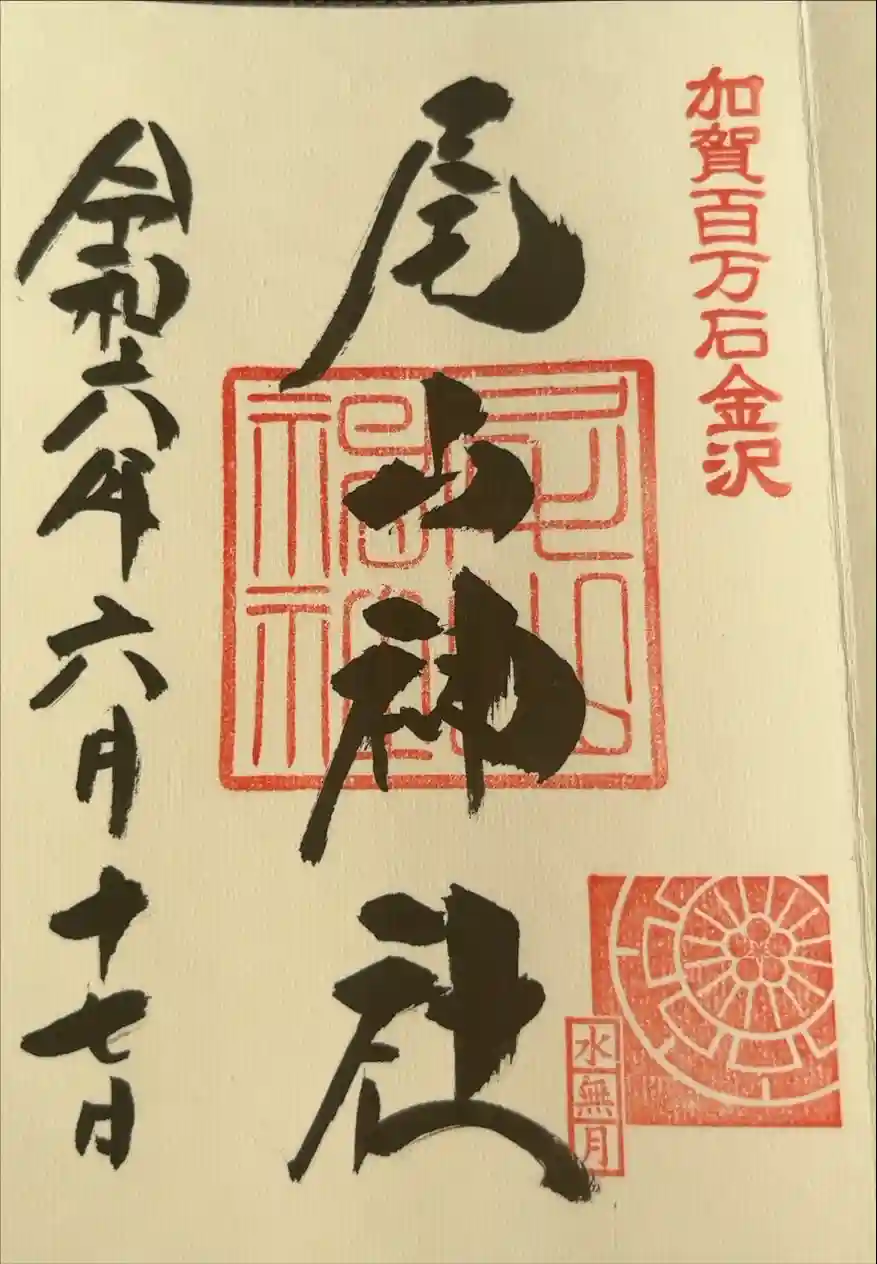 加賀百万石金沢
尾山神社
尾山神社
水無月
令和六年六月十七日